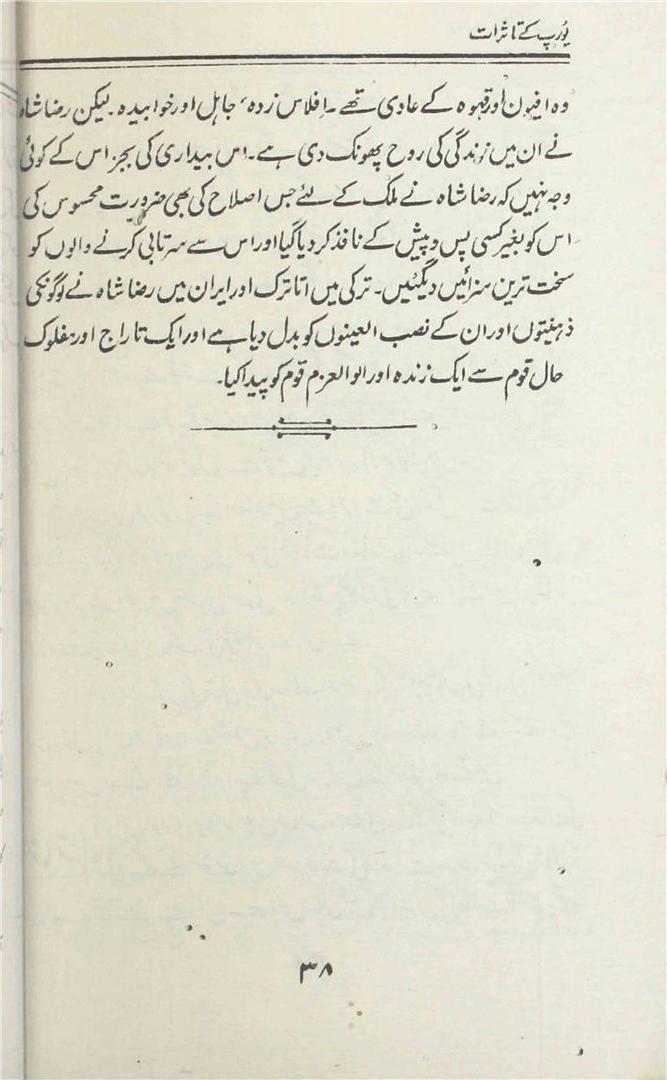 یورپ کے تاثرات
وہ افیون اور قہوہ کے عادی تھے ۔ افلاس زدہ ، جاہل اور خوابیدہ ۔ لیکن رضا شاہ
نے ان میں زندگی کی روح پھونک دی ہے ۔ اس بیداری کی بجز اس کے کوئی
وجہ نہیں کہ رضا شاہ نے ملک کے لئے جس اصلاح کی بھی ضرورت محسوس کی
اس کو بغیر کسی پس و پیش کے نافذ کر دیا گیا اور اس سے سرتابی کرنے والوں کو
سخت ترین سزائیں دیگئیں ۔ ترکی میں اتاترک اور ایران میں رضا شاہ نے لوگونکی
ذہنیتوں اور ان کے نصب العینوں کو بدل دیا ہے اور ایک تاراج اور مفلوک
حال قوم سے ایک زندہ اور الوالعزم قوم کو پیدا کیا ۔
۳۸